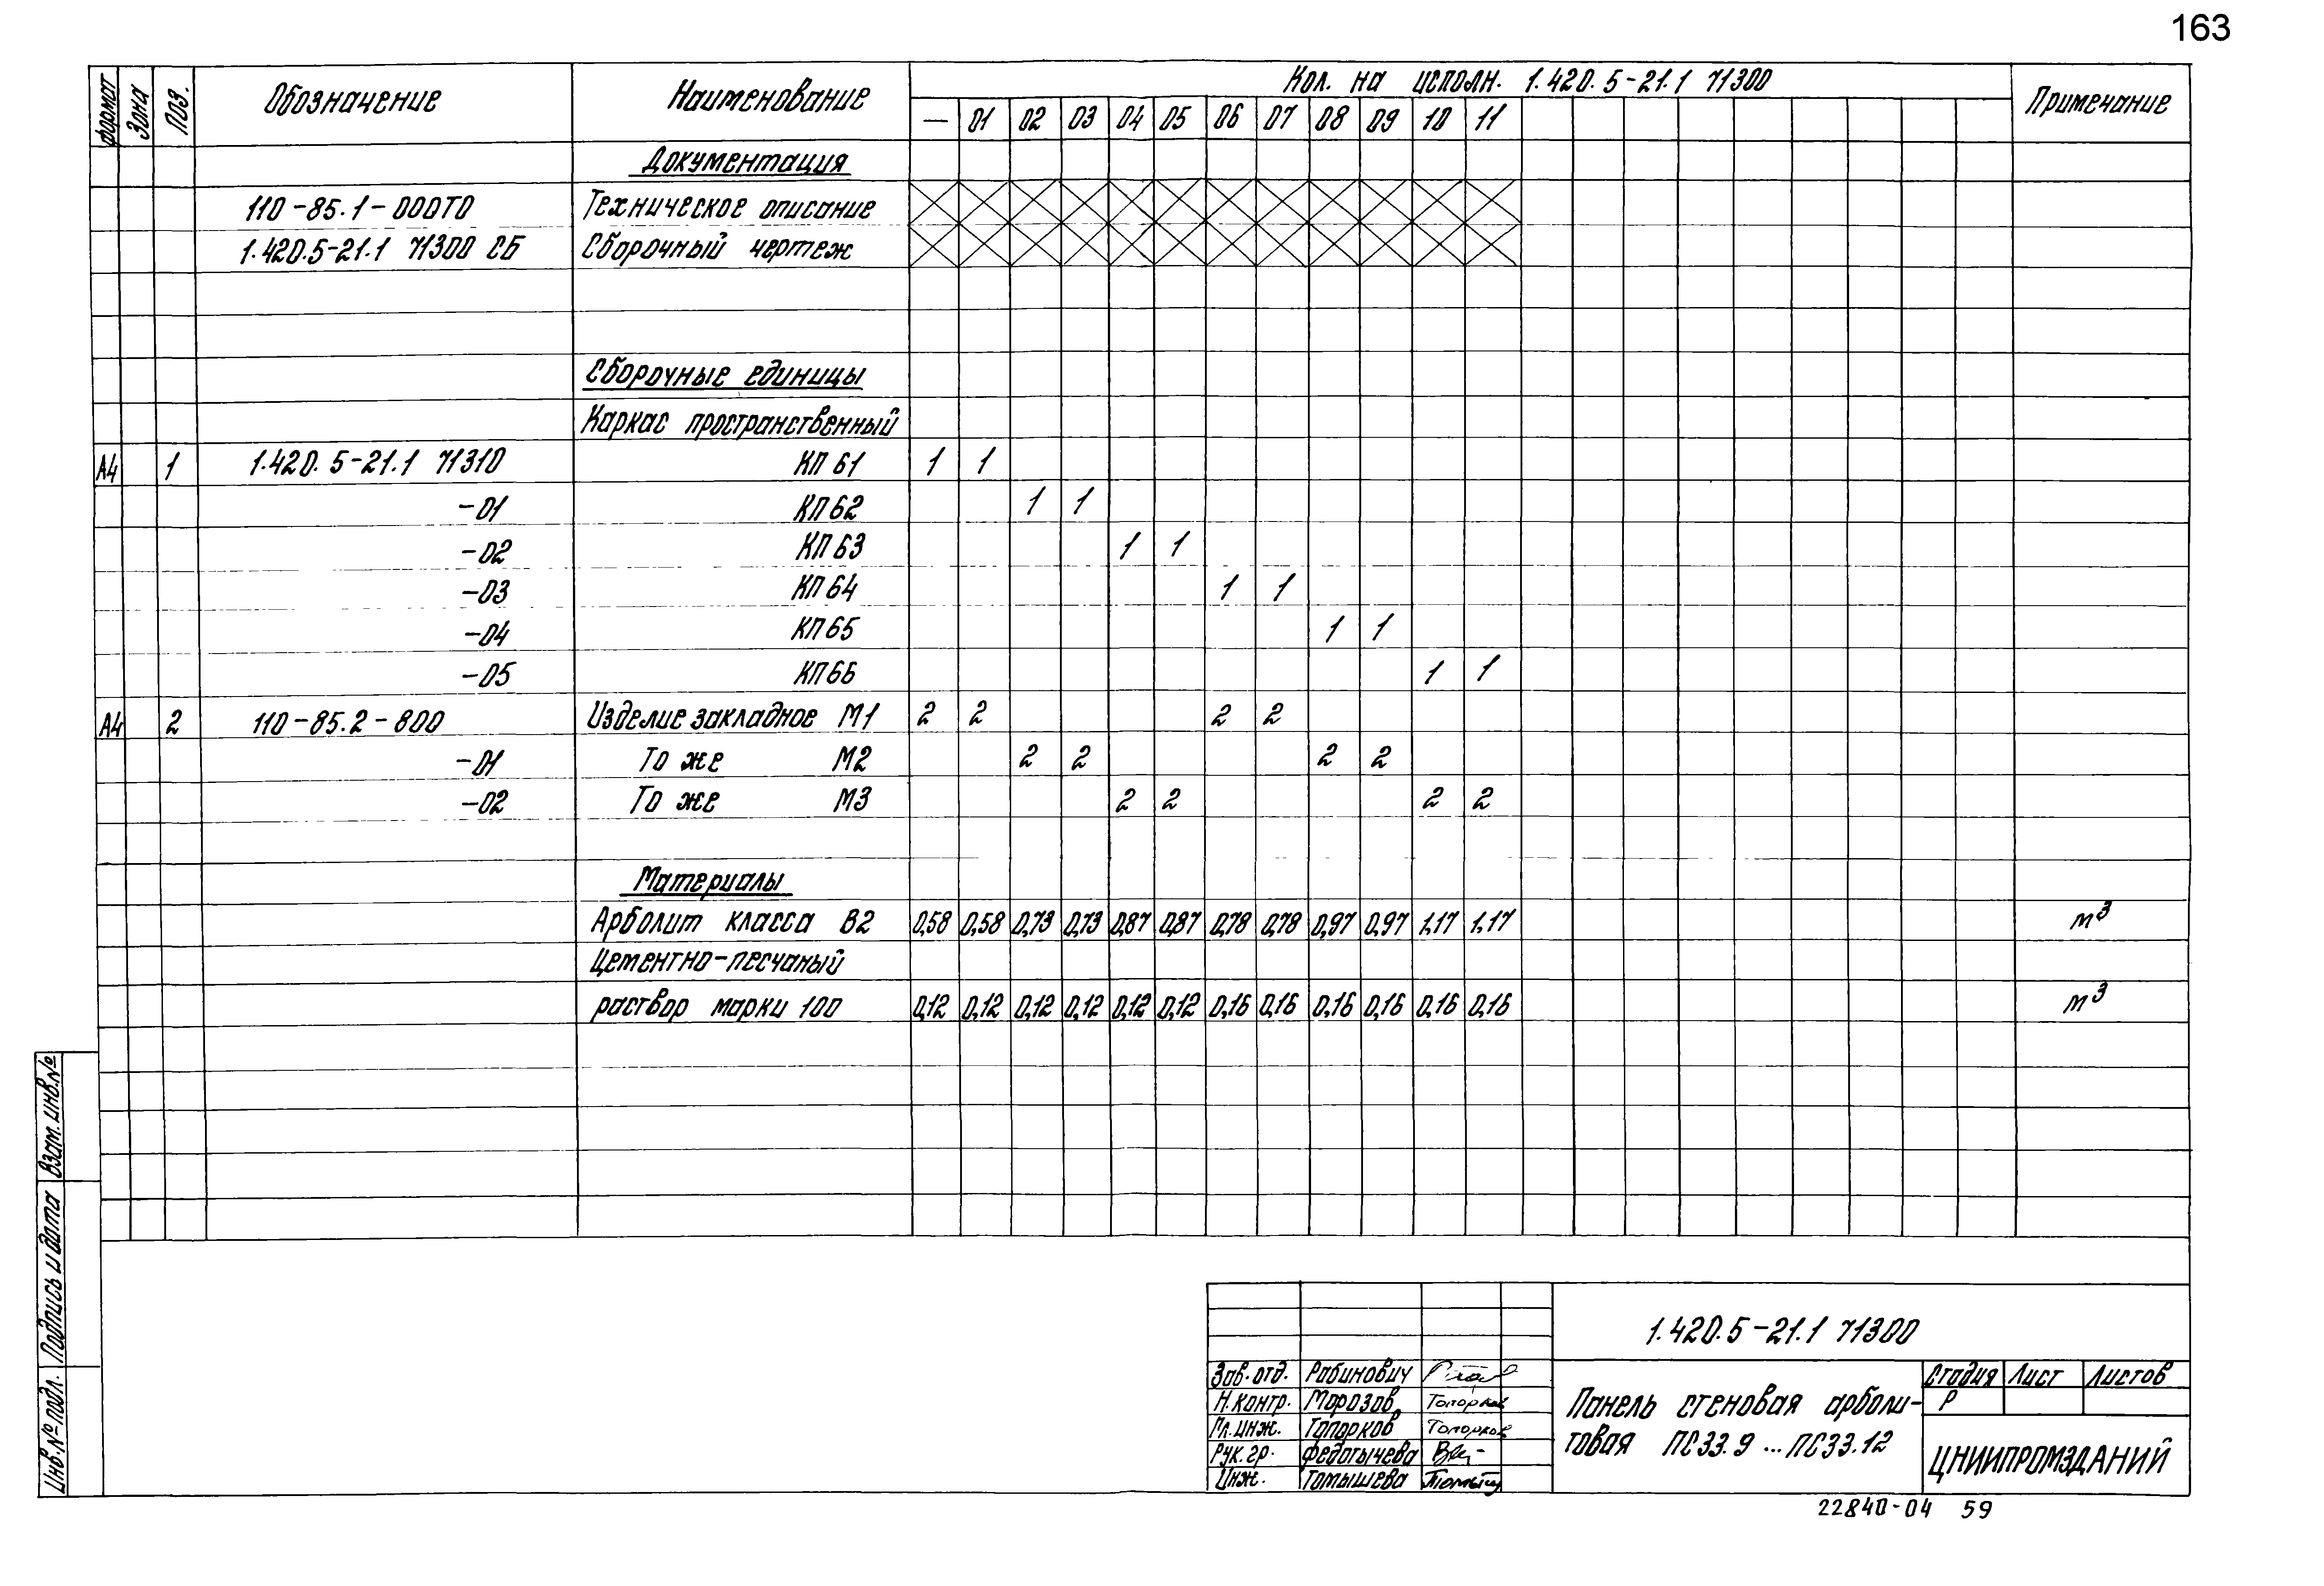 163
формат Зона Поз. Обозначение Наименование Кол. на исполн. 1.420.5-21.1 71300 Примечание
— 01 02 03 04 05 06 07 08 09 10 11
Документация
110-85.1-000ТО Техническое описание
1.420.5-21.1 71300 СБ Сборочный чертеж
Сборочные единицы
Каркас пространственный
А4 1 1.420.5-21.1 71310 КП 61 1 1
-01 КП 62 1 1
-02 КП 63 1 1
-03 КП 64 1 1
-04 КП 65 1 1
-05 КП 66 1 1
А4 2 110-85.2-800 Изделие закладное М1 2 2 2 2
-01 То же М2 2 2 2 2
-02 То же М3 2 2 2 2
Материалы
Арболит класса В2 0,58 0,58 0,73 0,73 0,87 0,87 0,78 0,78 0,97 0,97 1,17 1,17 м³
Цементно-песчаный
раствор марки 100 0,12 0,12 0,12 0,12 0,12 0,12 0,16 0,16 0,16 0,16 0,16 0,16 м³
Взам. инв. №
Подпись и дата
Инв. № подл.
1.420.5-21.1 71300
Зав. отд. Рабинович
Н. контр. Морозов Топорков
Гл. инж. Топорков Топорков
Рук. гр. Федотычева
Инж. Томышева
Панель стеновая арболи-
товая ПС33.9 ... ПС33.12
Стадия Лист Листов
Р
ЦНИИПРОМЗДАНИЙ
22840-04 59